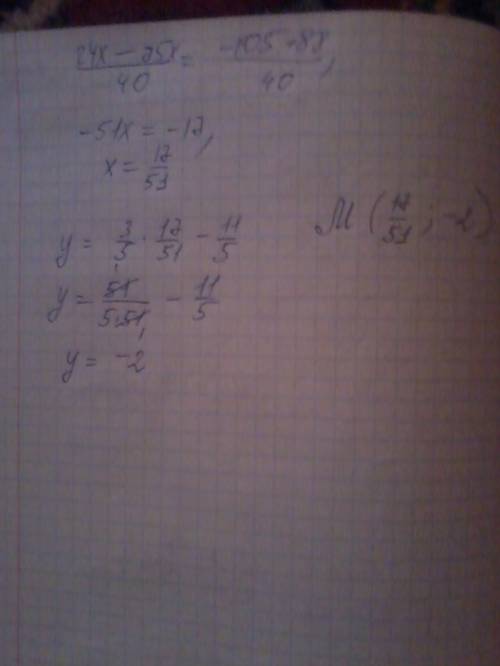 24x − 75x / 40 = −105 + 88 / 40,
−51x = −17,
x = 17/51
y = 3/5 · 17/51 − 11/5
M (17/51; −2)
y = 51/5·51 − 11/5
y = −2